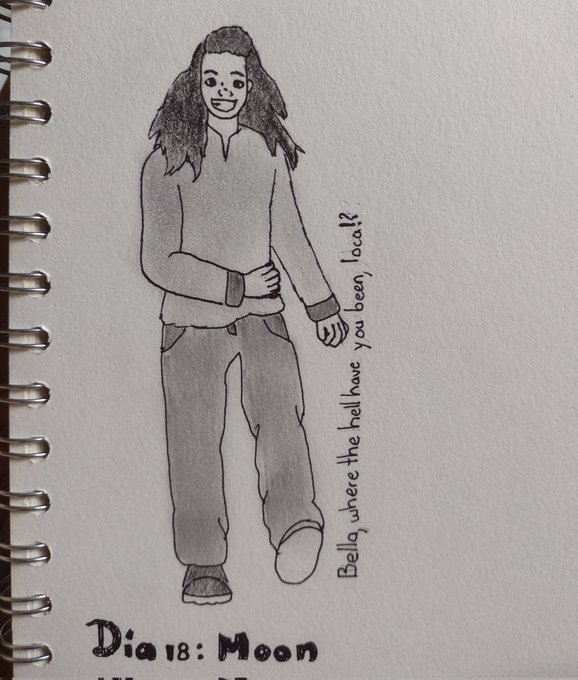 Bella, where the hell have you been, loca!?
Dia 18: Moon